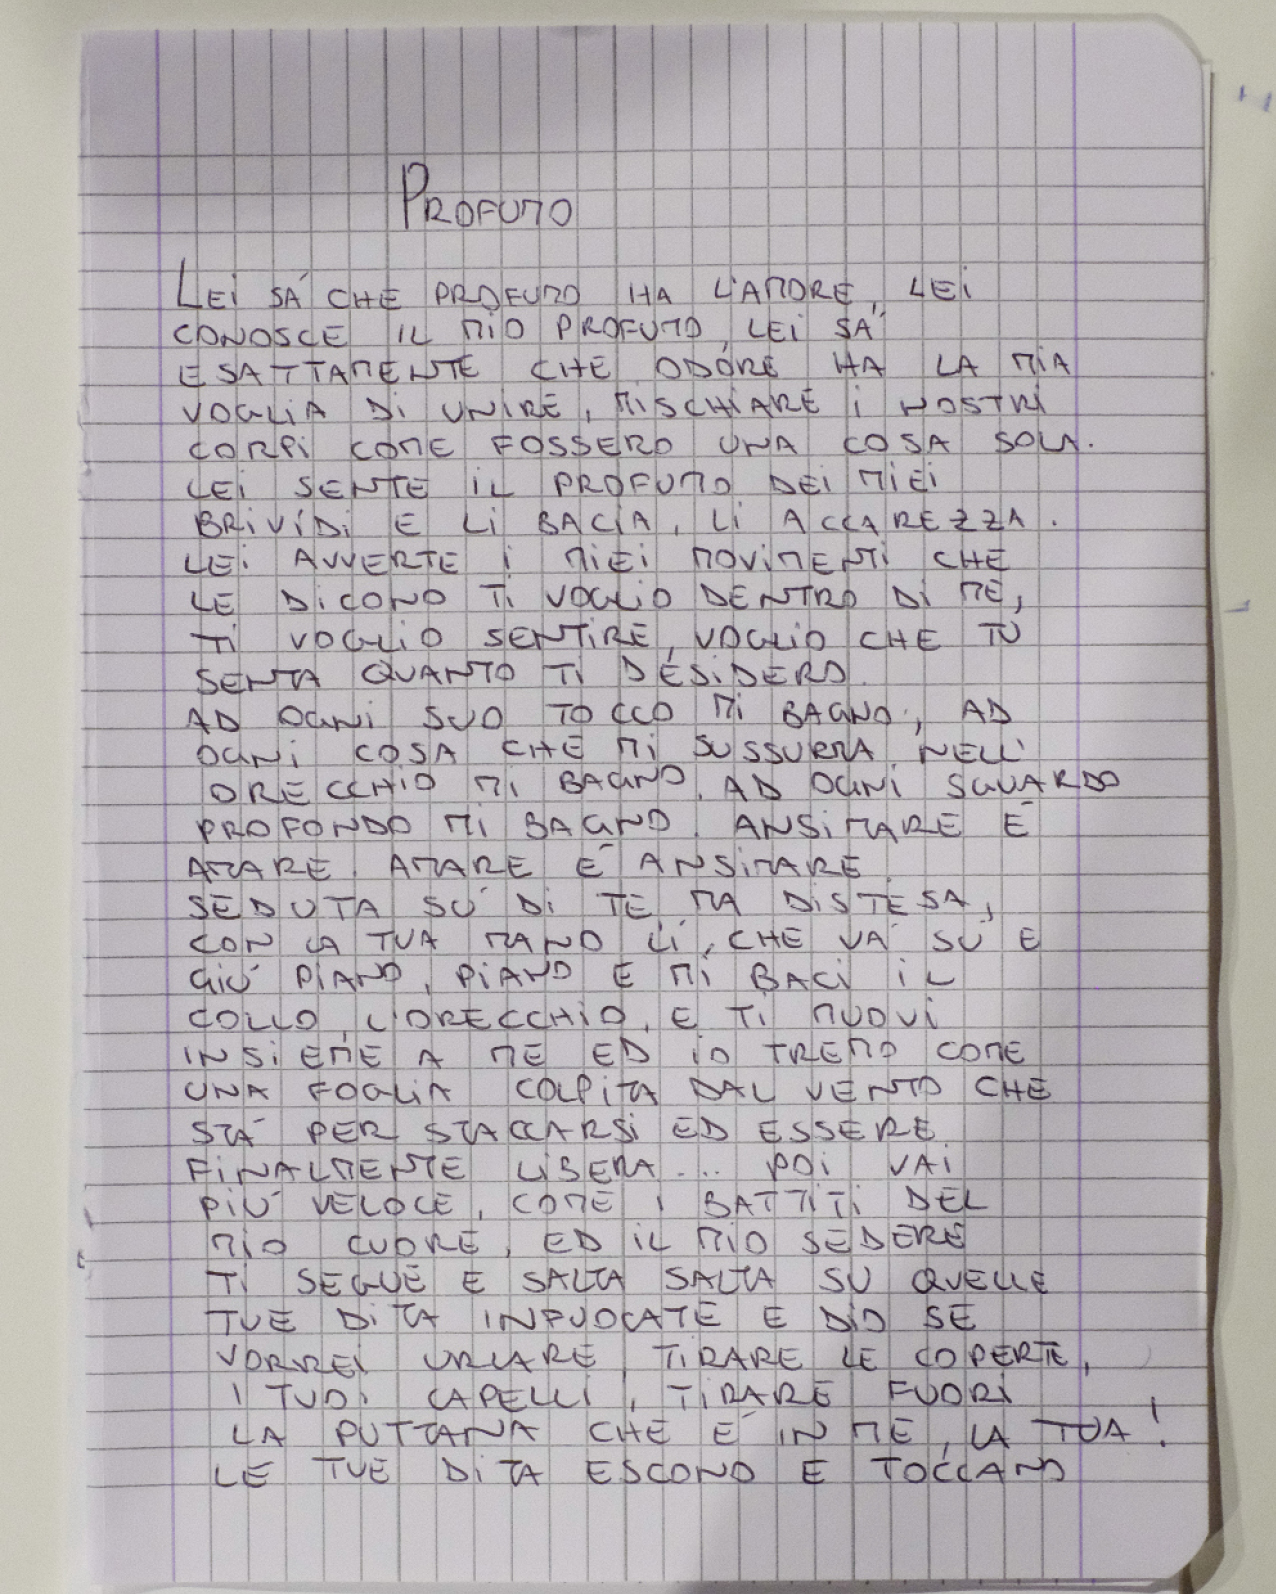 PROFUMO
LEI SÀ CHE PROFUMO HA L'AMORE, LEI
CONOSCE IL MIO PROFUMO, LEI SÀ
ESATTAMENTE CHE ODORE HA LA MIA
VOGLIA DI UNIRE, MISCHIARE I NOSTRI
CORPI COME FOSSERO UNA COSA SOLA.
LEI SENTE IL PROFUMO DEI MIEI
BRIVIDI E LI BACIA, LI ACCAREZZA.
LEI AVVERTE I MIEI MOVIMENTI CHE
LE DICONO TI VOGLIO DENTRO DI ME,
TI VOGLIO SENTIRE, VOGLIO CHE TU
SENTA QUANTO TI DESIDERO.
AD OGNI SUO TOCCO MI BAGNO, AD
OGNI COSA CHE MI SUSSURRA NELL'
ORECCHIO MI BAGNO, AD OGNI SGUARDO
PROFONDO MI BAGNO. ANSIMARE È
AMARE, AMARE È ANSIMARE.
SEDUTA SÙ DI TE MA DISTESA,
CON LA TUA MANO LÌ, CHE VÀ SÙ E
GIÙ PIANO, PIANO E MI BACI IL
COLLO, L'ORECCHIO, E TI MUOVI
INSIEME A ME ED IO TREMO COME
UNA FOGLIA COLPITA DAL VENTO CHE
STÀ PER STACCARSI ED ESSERE
FINALMENTE LIBERA... POI VAI
PIÙ VELOCE, COME I BATTITI DEL
MIO CUORE, ED IL MIO SEDERE
TI SEGUE E SALTA SALTA SU QUELLE
TUE DITA INFUOCATE E DIO SE
VORREI URLARE, TIRARE LE COPERTE,
I TUOI CAPELLI, TIRARE FUORI
LA PUTTANA CHE È IN ME, LA TUA!
LE TUE DITA ESCONO E TOCCANO